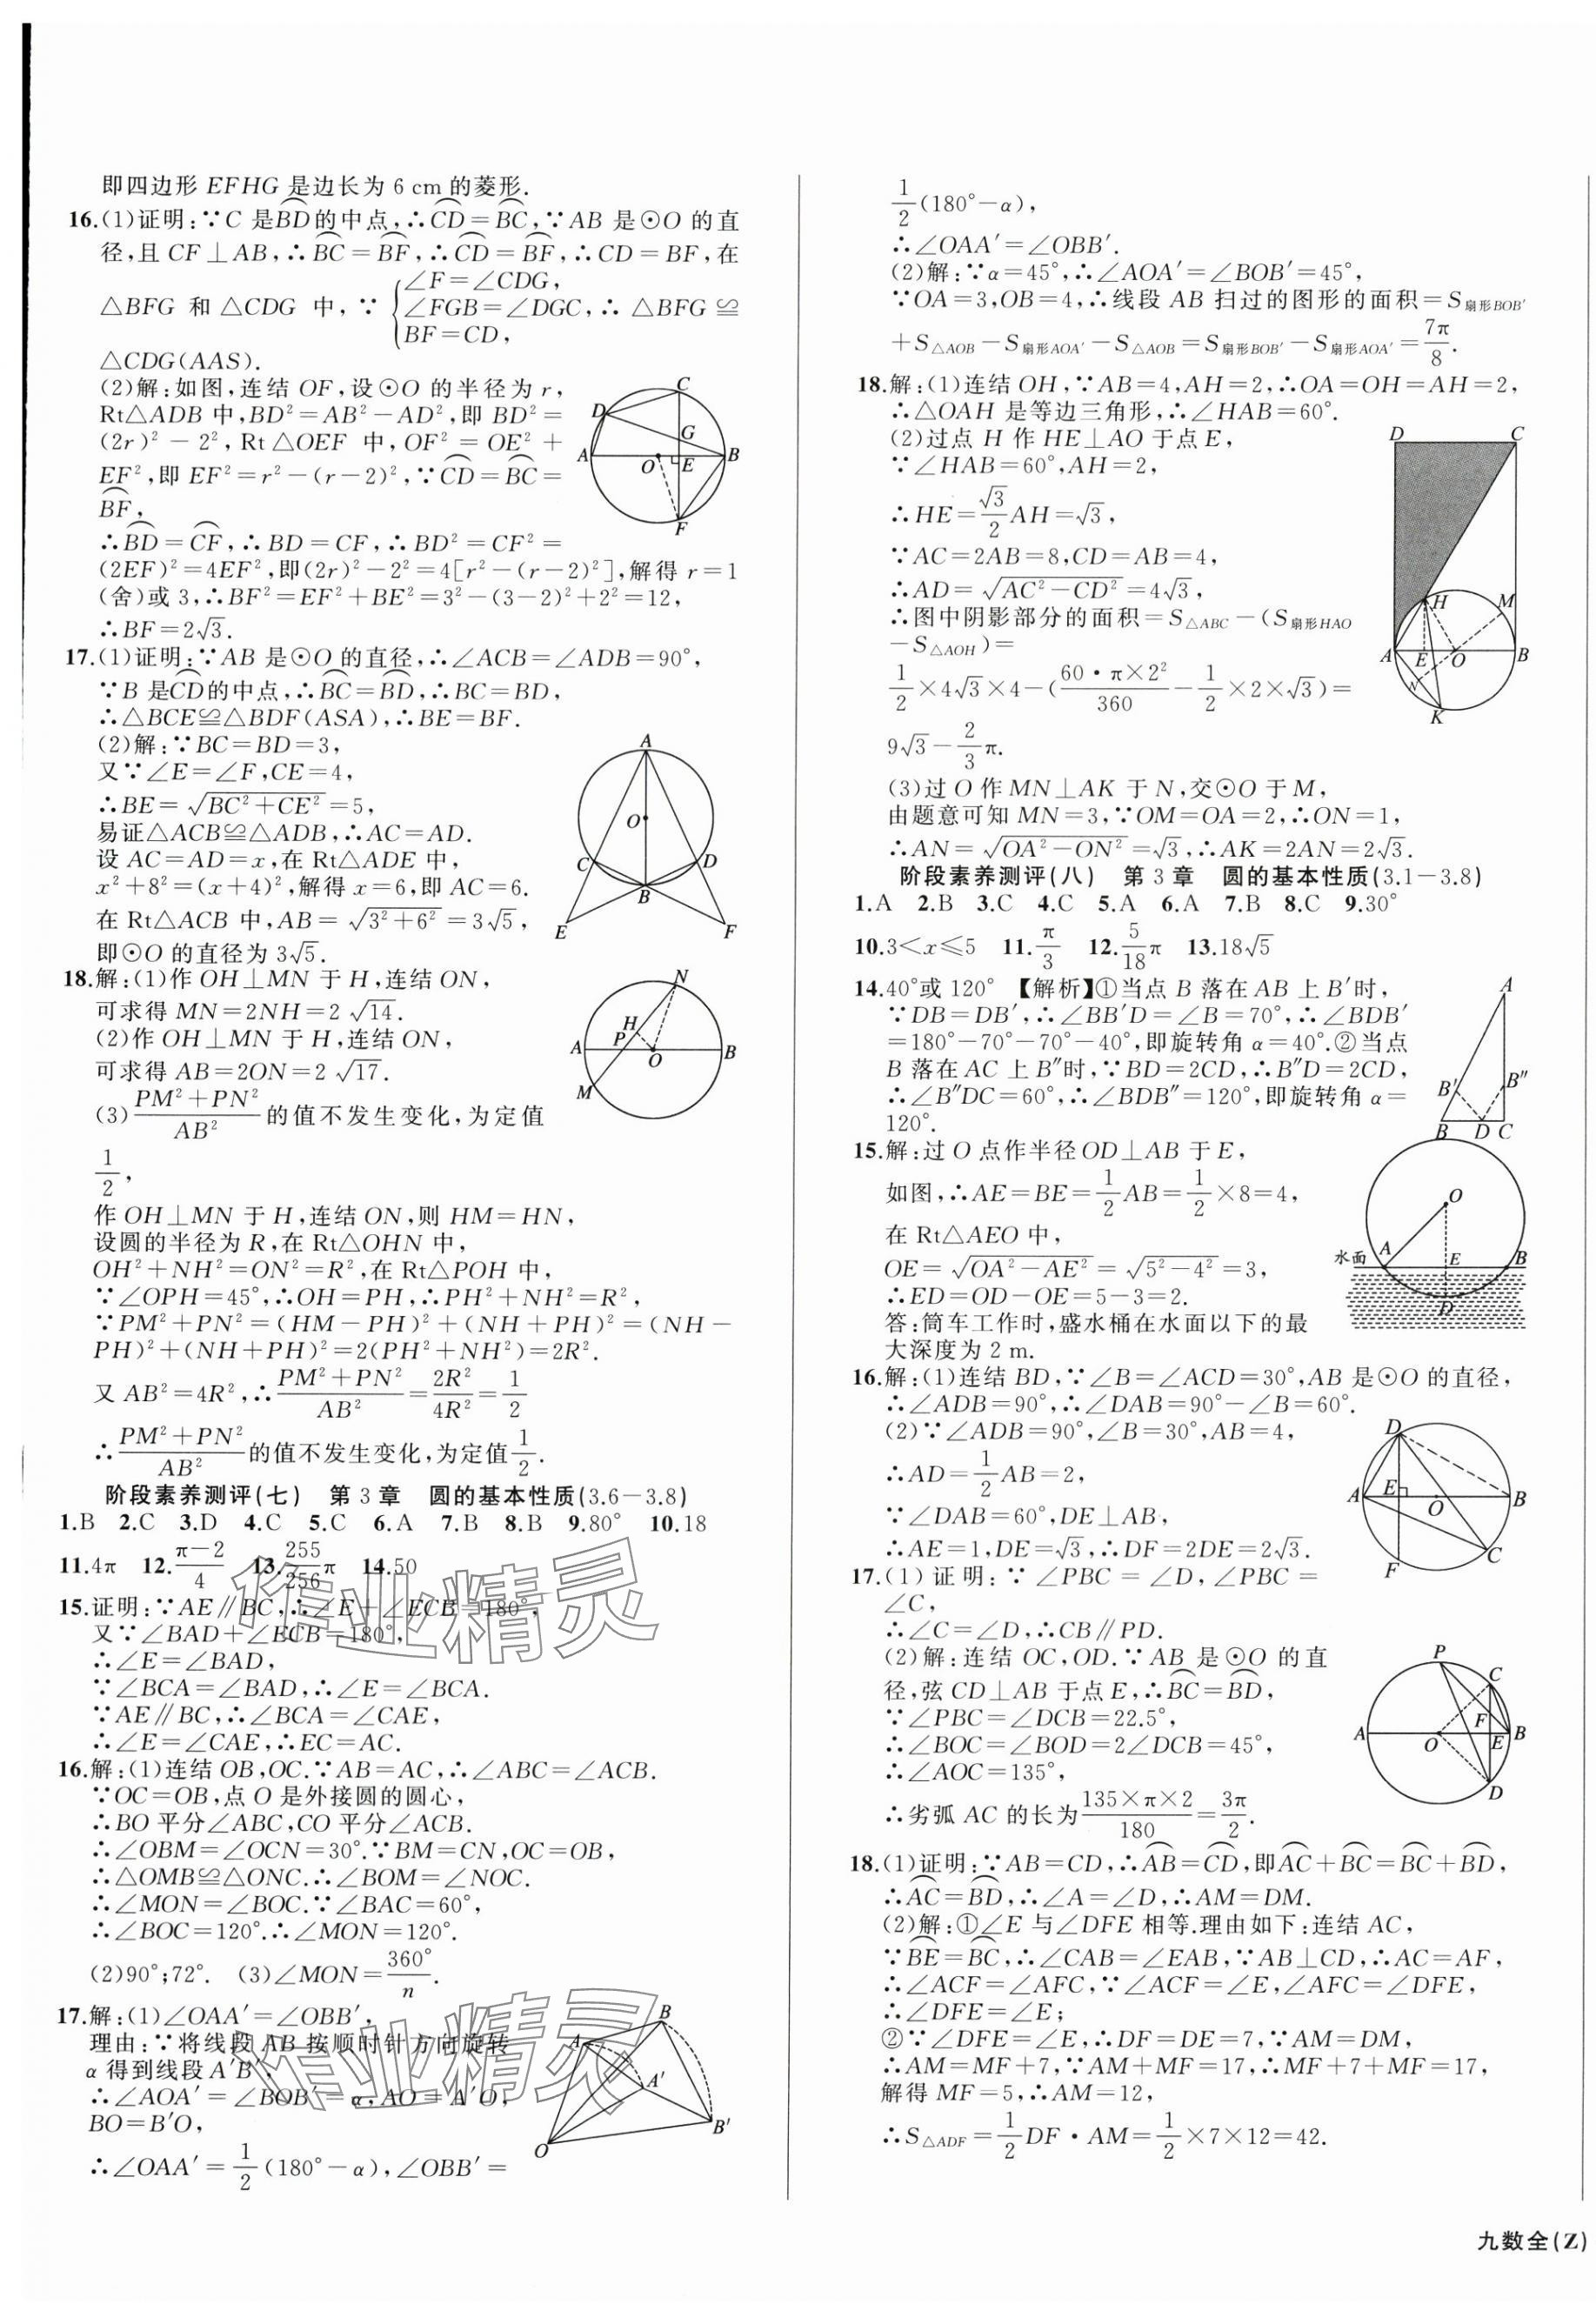 即四边形 EFHG 是边长为 6 cm 的菱形.
16.(1)证明:∵C 是B͡D的中点,∴C͡D=B͡C,∵AB 是⊙O 的直
径,且 CF⊥AB,∴B͡C=B͡F,∴C͡D=B͡F,∴CD=BF,在
△BFG 和△CDG 中,∵{∠F=∠CDG, ∠FGB=∠DGC, BF=CD,∴△BFG≌
△CDG(AAS).
(2)解:如图,连结 OF,设⊙O 的半径为 r,
Rt△ADB 中,BD²=AB²-AD²,即 BD²=
(2r)²-2²,Rt△OEF 中,OF²=OE²+
EF²,即 EF²=r²-(r-2)²,∵C͡D=B͡C=
B͡F,
∴B͡D=C͡F,∴BD=CF,∴BD²=CF²=
(2EF)²=4EF²,即(2r)²-2²=4[r²-(r-2)²],解得 r=1
(舍)或 3,∴BF²=EF²+BE²=3²-(3-2)²+2²=12,
∴BF=2√3.
17.(1)证明:∵AB 是⊙O 的直径,∴∠ACB=∠ADB=90°,
∵B 是C͡D的中点,∴B͡C=B͡D,∴BC=BD,
∴△BCE≌△BDF(ASA),∴BE=BF.
(2)解:∵BC=BD=3,
又∵∠E=∠F,CE=4,
∴BE=√(BC²+CE²)=5,
易证△ACB≌△ADB,∴AC=AD.
设 AC=AD=x,在 Rt△ADE 中,
x²+8²=(x+4)²,解得 x=6,即 AC=6.
在 Rt△ACB 中,AB=√(3²+6²)=3√5,
即⊙O 的直径为 3√5.
18.解:(1)作 OH⊥MN 于 H,连结 ON,
可求得 MN=2NH=2√14.
(2)作 OH⊥MN 于 H,连结 ON,
可求得 AB=2ON=2√17.
(3)(PM²+PN²)/AB²的值不发生变化,为定值
1/2,
作 OH⊥MN 于 H,连结 ON,则 HM=HN,
设圆的半径为 R,在 Rt△OHN 中,
OH²+NH²=ON²=R²,在 Rt△POH 中,
∵∠OPH=45°,∴OH=PH,∴PH²+NH²=R²,
∵PM²+PN²=(HM-PH)²+(NH+PH)²=(NH-
PH)²+(NH+PH)²=2(PH²+NH²)=2R².
又 AB²=4R²,∴(PM²+PN²)/AB²=2R²/4R²=1/2
∴(PM²+PN²)/AB²的值不发生变化,为定值1/2.
阶段素养测评(七) 第 3 章 圆的基本性质(3.6-3.8)
1.B 2.C 3.D 4.C 5.C 6.A 7.B 8.B 9.80° 10.18
11.4π 12.(π-2)/4 13.255/256π 14.50
15.证明:∵AE∥BC,∴∠E+∠ECB=180°,
又∵∠BAD+∠ECB=180°,
∴∠E=∠BAD,
∵∠BCA=∠BAD,∴∠E=∠BCA.
∵AE∥BC,∴∠BCA=∠CAE,
∴∠E=∠CAE,∴EC=AC.
16.解:(1)连结 OB,OC.∵AB=AC,∴∠ABC=∠ACB.
∵OC=OB,点 O 是外接圆的圆心,
∴BO 平分∠ABC,CO 平分∠ACB.
∴∠OBM=∠OCN=30°.∵BM=CN,OC=OB,
∴△OMB≌△ONC.∴∠BOM=∠NOC.
∴∠MON=∠BOC.∵∠BAC=60°,
∴∠BOC=120°.∴∠MON=120°.
(2)90°;72°. (3)∠MON=360°/n.
17.解:(1)∠OAA′=∠OBB′,
理由:∵将线段 AB 按顺时针方向旋转
α 得到线段 A′B′,
∴∠AOA′=∠BOB′=α,AO=A′O,
BO=B′O,
∴∠OAA′=1/2(180°-α),∠OBB′=
1/2(180°-α),
∴∠OAA′=∠OBB′.
(2)解:∵α=45°,∴∠AOA′=∠BOB′=45°,
∵OA=3,OB=4,∴线段 AB 扫过的图形的面积=S扇形BOB′
+S△AOB-S扇形AOA′-S△AOB=S扇形BOB′-S扇形AOA′=7π/8.
18.解:(1)连结 OH,∵AB=4,AH=2,∴OA=OH=AH=2,
∴△OAH 是等边三角形,∴∠HAB=60°.
(2)过点 H 作 HE⊥AO 于点 E,
∵∠HAB=60°,AH=2,
∴HE=√3/2AH=√3,
∵AC=2AB=8,CD=AB=4,
∴AD=√(AC²-CD²)=4√3,
∴图中阴影部分的面积=S△ABC-(S扇形HAO
-S△AOH)=
1/2×4√3×4-(60·π×2²/360-1/2×2×√3)=
9√3-2/3π.
(3)过 O 作 MN⊥AK 于 N,交⊙O 于 M,
由题意可知 MN=3,∵OM=OA=2,∴ON=1,
∴AN=√(OA²-ON²)=√3,∴AK=2AN=2√3.
阶段素养测评(八) 第 3 章 圆的基本性质(3.1-3.8)
1.A 2.B 3.C 4.C 5.A 6.A 7.B 8.C 9.30°
10.3<x≤5 11.π/3 12.5/18π 13.18√5
14.40°或 120° 【解析】①当点 B 落在 AB 上 B′时,
∵DB=DB′,∴∠BB′D=∠B=70°,∴∠BDB′
=180°-70°-70°-40°,即旋转角 α=40°.②当点
B 落在 AC 上 B″时,∵BD=2CD,∴B″D=2CD,
∴∠B″DC=60°,∴∠BDB″=120°,即旋转角 α=
120°.
15.解:过 O 点作半径 OD⊥AB 于 E,
如图,∴AE=BE=1/2AB=1/2×8=4,
在 Rt△AEO 中,
OE=√(OA²-AE²)=√(5²-4²)=3,
∴ED=OD-OE=5-3=2.
答:筒车工作时,盛水桶在水面以下的最
大深度为 2 m.
16.解:(1)连结 BD,∵∠B=∠ACD=30°,AB 是⊙O 的直径,
∴∠ADB=90°,∴∠DAB=90°-∠B=60°.
(2)∵∠ADB=90°,∠B=30°,AB=4,
∴AD=1/2AB=2,
∵∠DAB=60°,DE⊥AB,
∴AE=1,DE=√3,∴DF=2DE=2√3.
17.(1)证明:∵∠PBC=∠D,∠PBC=
∠C,
∴∠C=∠D,∴CB∥PD.
(2)解:连结 OC,OD.∵AB 是⊙O 的直
径,弦 CD⊥AB 于点 E,∴B͡C=B͡D,
∵∠PBC=∠DCB=22.5°,
∴∠BOC=∠BOD=2∠DCB=45°,
∴∠AOC=135°,
∴劣弧 AC 的长为135×π×2/180=3π/2.
18.(1)证明:∵AB=CD,∴A͡B=C͡D,即A͡C+B͡C=B͡C+B͡D,
∴A͡C=B͡D,∴∠A=∠D,∴AM=DM.
(2)解:①∠E 与∠DFE 相等.理由如下:连结 AC,
∵B͡E=B͡C,∴∠CAB=∠EAB,∵AB⊥CD,∴AC=AF,
∴∠ACF=∠AFC,∵∠ACF=∠E,∠AFC=∠DFE,
∴∠DFE=∠E;
②∵∠DFE=∠E,∴DF=DE=7,∵AM=DM,
∴AM=MF+7,∵AM+MF=17,∴MF+7+MF=17,
解得 MF=5,∴AM=12,
∴S△ADF=1/2DF·AM=1/2×7×12=42.
水面
作业精灵
作业精灵
九数全(Z)